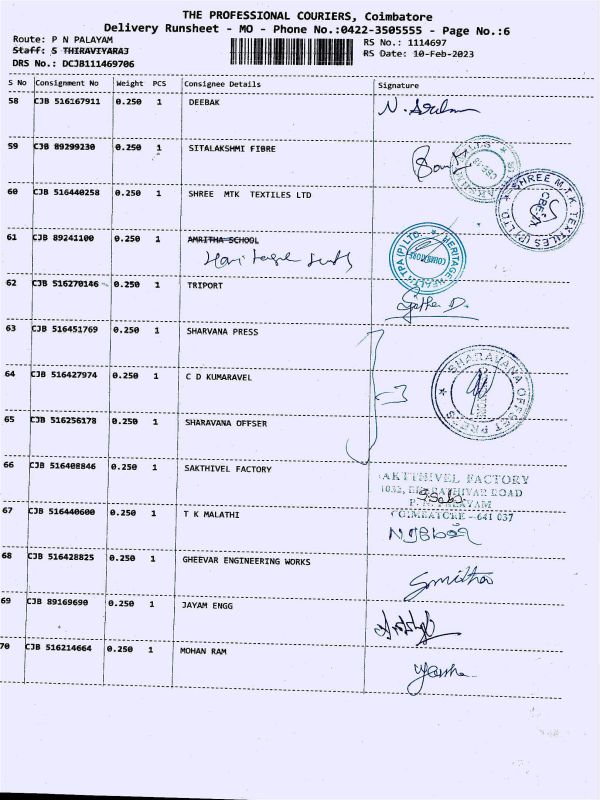 THE PROFESSIONAL COURIERS, Coimbatore
Delivery Runsheet - MO - Phone No.:0422-3505555 - Page No.:6
Route: P N PALAYAM
RS No.: 1114697
Staff: S THIRAVIYARAJ
RS Date: 10-Feb-2023
DRS No.: DCJB111469706
S No Consignment No Weight PCS Consignee Details Signature
58 CJB 516167911 0.250 1 DEEBAK
59 CJB 89299230 0.250 1 SITALAKSHMI FIBRE
60 CJB 516440258 0.250 1 SHREE MTK TEXTILES LTD
SHREE M.T.K TEXTILES (P) LTD.
61 CJB 89241100 0.250 1 AMRITHA SCHOOL
HERITAGE HEALTH TPA (P) LTD. COIMBATORE
62 CJB 516270146 0.250 1 TRIPORT
63 CJB 516451769 0.250 1 SHARVANA PRESS
64 CJB 516427974 0.250 1 C D KUMARAVEL
SHARAVANA OFFSET PRESS
65 CJB 516256178 0.250 1 SHARAVANA OFFSER
66 CJB 516408846 0.250 1 SAKTHIVEL FACTORY
AKTTHIVEL FACTORY
ROAD
COIMBATORE - 641 037
67 CJB 516440600 0.250 1 T K MALATHI
68 CJB 516428825 0.250 1 GHEEVAR ENGINEERING WORKS
69 CJB 89169690 0.250 1 JAYAM ENGG
70 CJB 516214664 0.250 1 MOHAN RAM